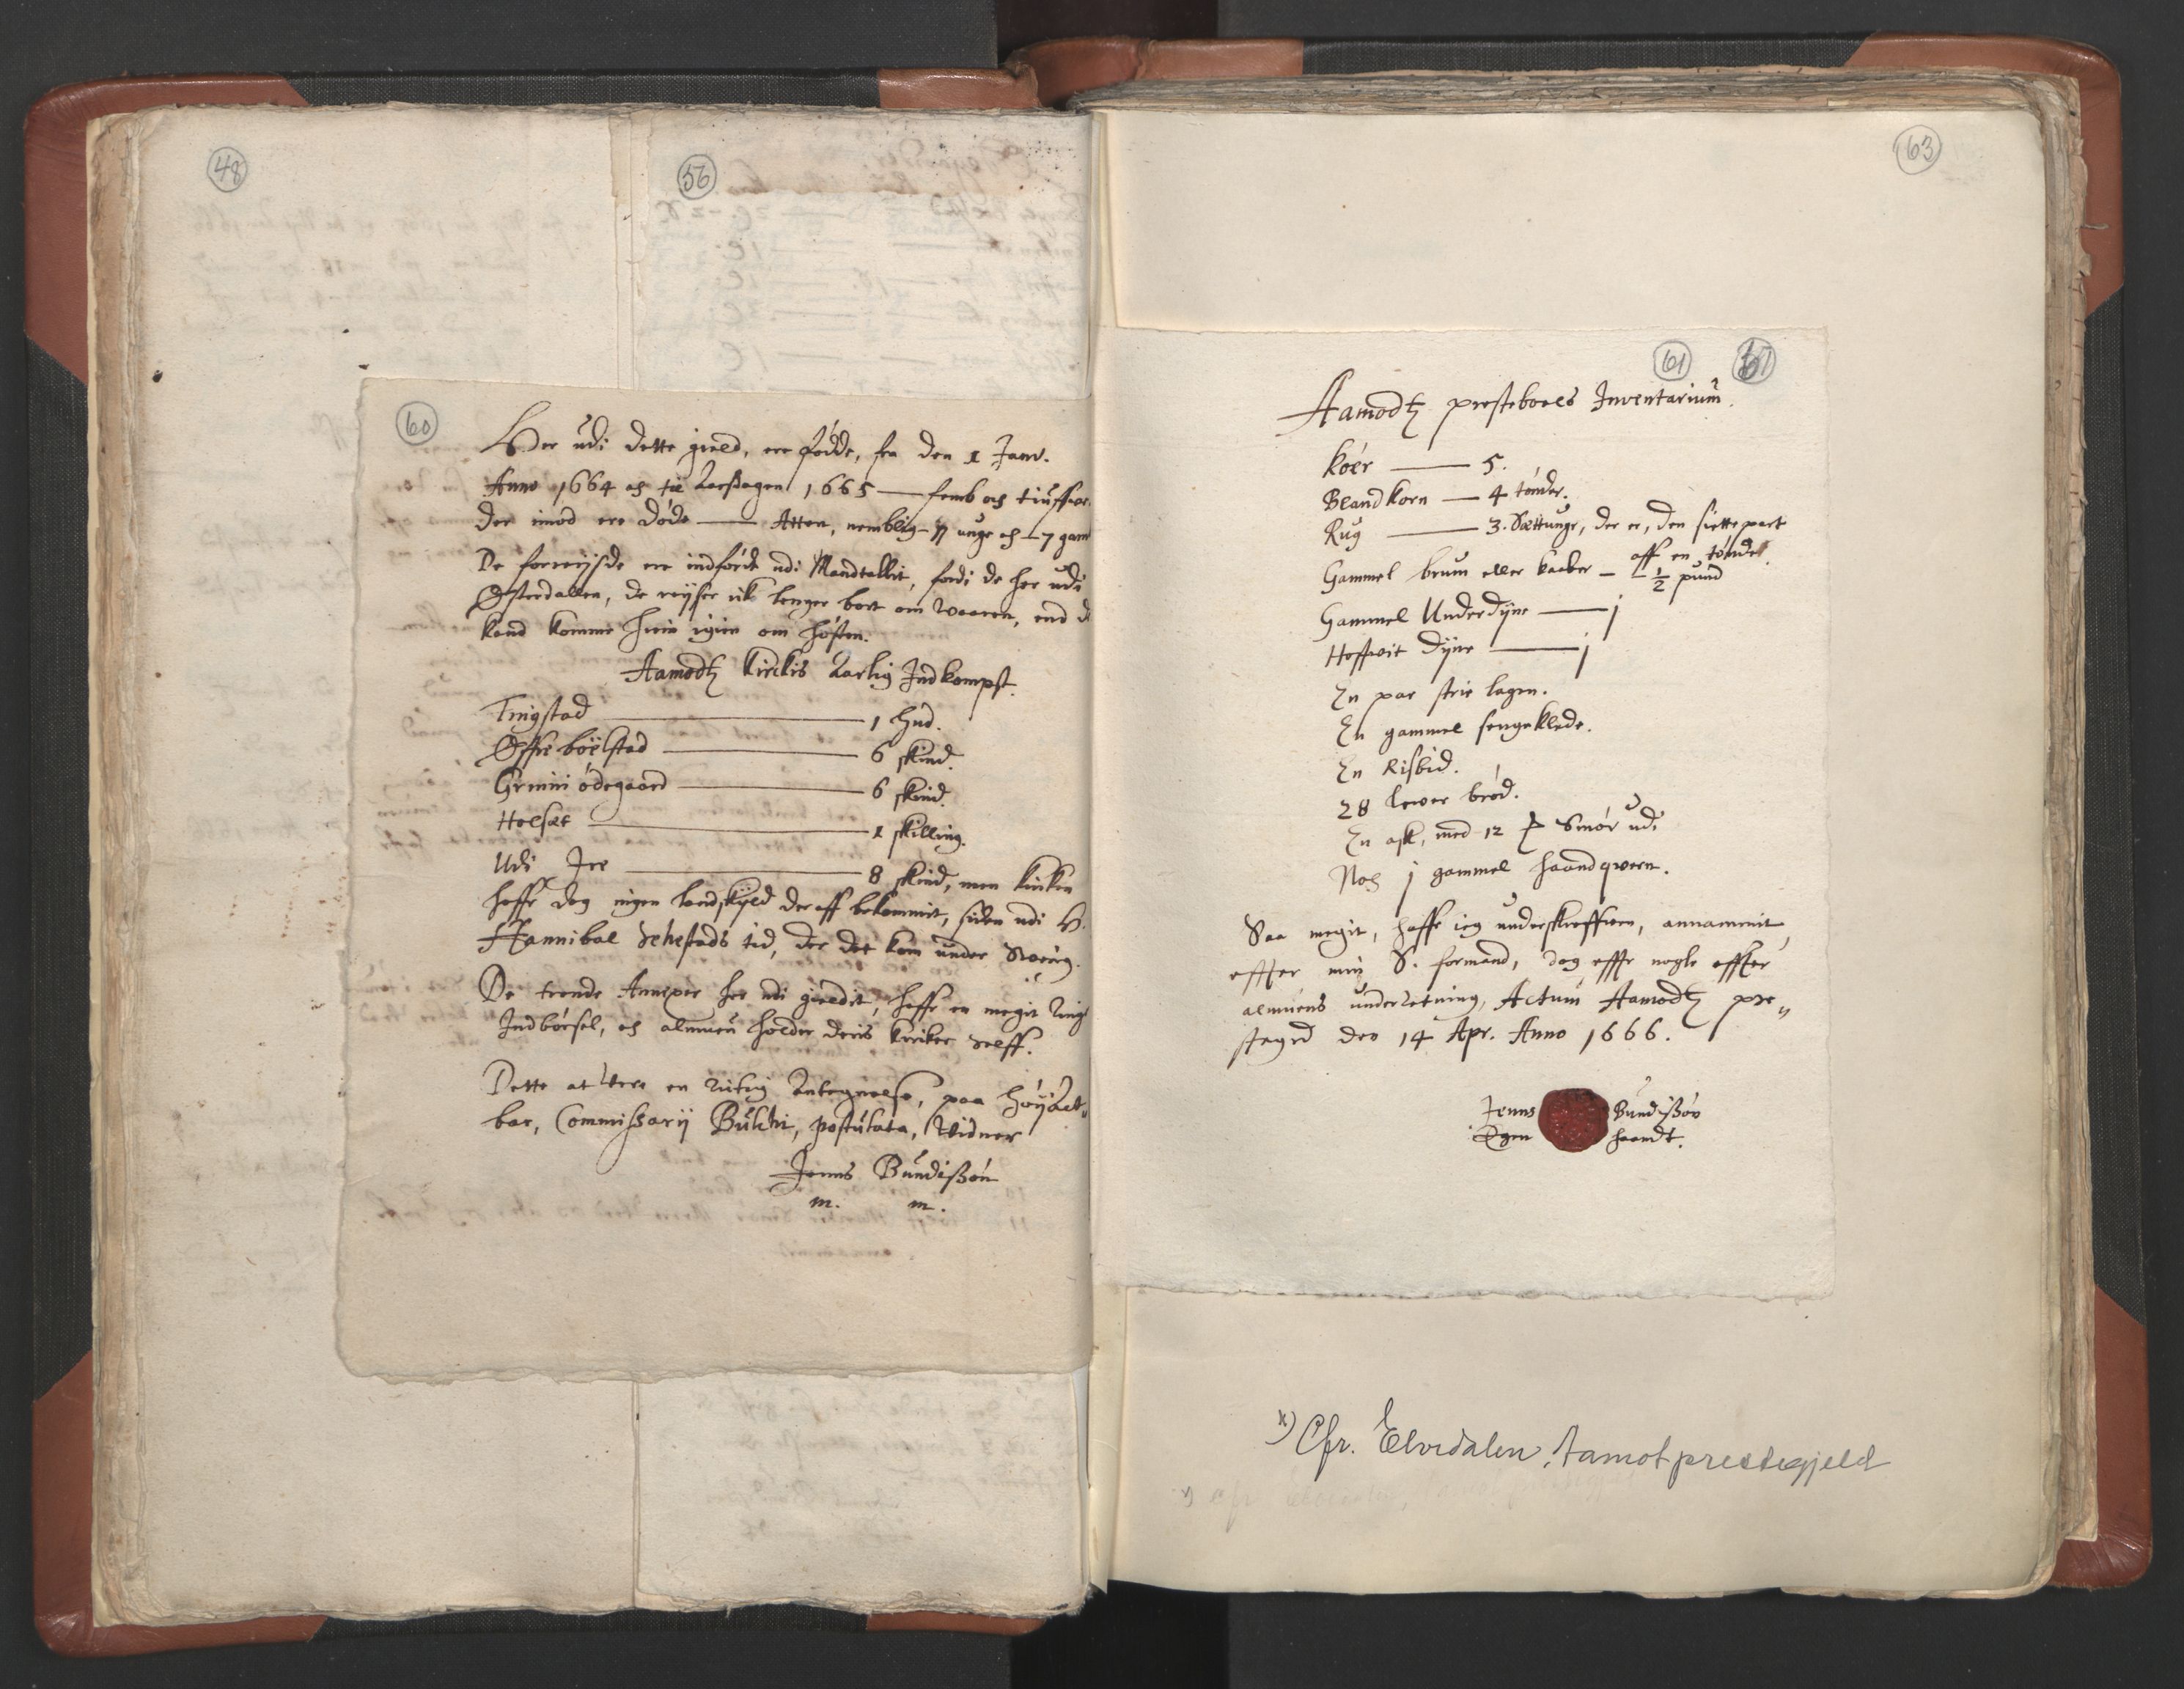 48
56
60
Her udi dette gield, ere fødde, fra den 1 Janv.
Anno 1664 och til Aarsdagen 1665 — femb och tiuffue
der imod ere døde — Atten, nemblig – 11 unge och – 7 gam
De forreijsde ere indførde udi Mandtallit, fordi de her udi
Østerdallen, de reijser ick lenger bort om Vaaren, end de
kand komme hiem igien om høsten.
Aamodtz Kirckis Aarlig Indkompst.
Tingstad — 1 hud.
Øffre bøelstad — 6 skind.
Grinni ødegaard — 6 skind.
Holset — 1 skilling.
Udi Jre — 8 skind, men kircken
haffr dog ingen landskyld der aff bekommit, siden udi H.
Hannibal Sehestads tid, der det kom under Sverig.
De trende Annexer her udi gieldit, haffr en megit Ring
Indbørsel, och almuen holder deris kircker selff.
Dette at Vere en Rictig Antegnelse, paa Høijact„
bar, Commissarij Buschi, postulata, Vidner
Jenns Bundissøn
m. m.
63
61
Aamodtz prestebools Inventarium.
Køer — 5.
Blandkorn — 4 tønder.
Rug — 3. Settunge, der er, den siette part
aff en tønde.
Gammel bruun eller kaaber – ½ pund
Gammel Underdijne — j
Hoffvit dijne — j
En par strie lagen.
En gammel sengeklede.
En Risbid.
28 lewer brød.
En ask, med 12 ℔ Smør udi
Noch j gammel haandqvern.
Saa megit, haffr ieg underskreffven, annammit
effter min S. formand, dog effter nogle effter
almuens underretning, Actum Aamodtz pre„
stegrd den 14 Apr. Anno 1666.
Jenns Bundissøn
Egen haandt.
x) Cfr. Elvedalen, Aamot prestegjeld